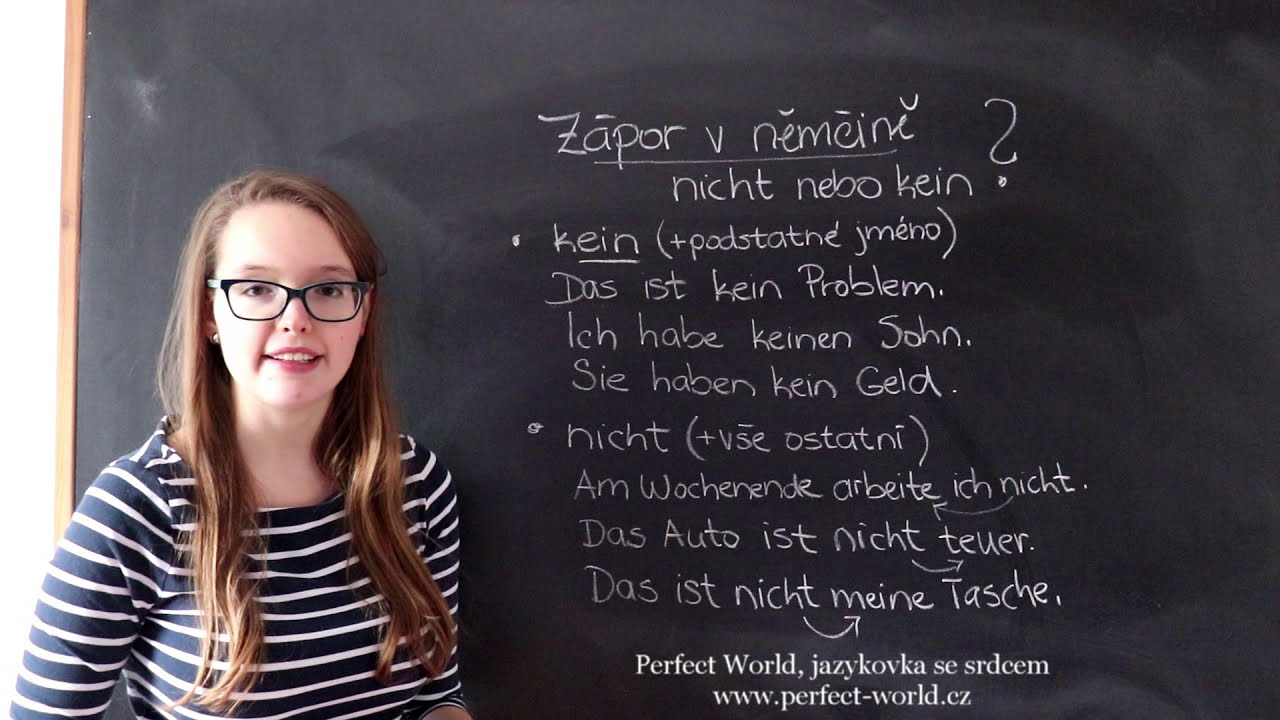 Zápor v němčině ?
nicht nebo kein
• kein (+podstatné jméno)
Das ist kein Problem.
Ich habe keinen Sohn.
Sie haben kein Geld.
• nicht (+vše ostatní)
Am Wochenende arbeite ich nicht.
Das Auto ist nicht teuer.
Das ist nicht meine Tasche.
Perfect World, jazykovka se srdcem
www.perfect-world.cz